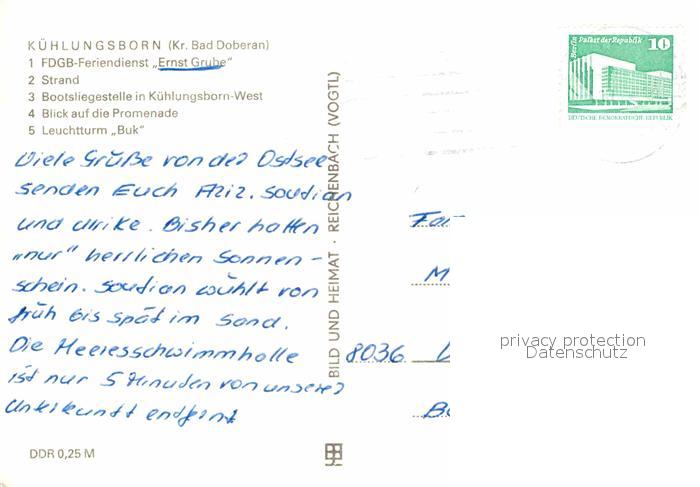 KÜHLUNGSBORN (Kr. Bad Doberan)
1 FDGB-Feriendienst „Ernst Grube"
2 Strand
3 Bootsliegestelle in Kühlungsborn-West
4 Blick auf die Promenade
5 Leuchtturm „Buk"
Viele Grüße von der Ostsee
senden Euch
und Ulrike. Bisher hatten
„nur" herrlichen Sonnen-
schein. wühlt von
früh bis spät im Sand.
Die Meeresschwimmhalle
ist nur 5 Minuten von unserer
Unterkunft entfernt
DDR 0,25 M
BILD UND HEIMAT · REICHENBACH (VOGTL)
Berlin Palast der Republik 10
DEUTSCHE DEMOKRATISCHE REPUBLIK
Fa
M
8036
privacy protection
Datenschutz